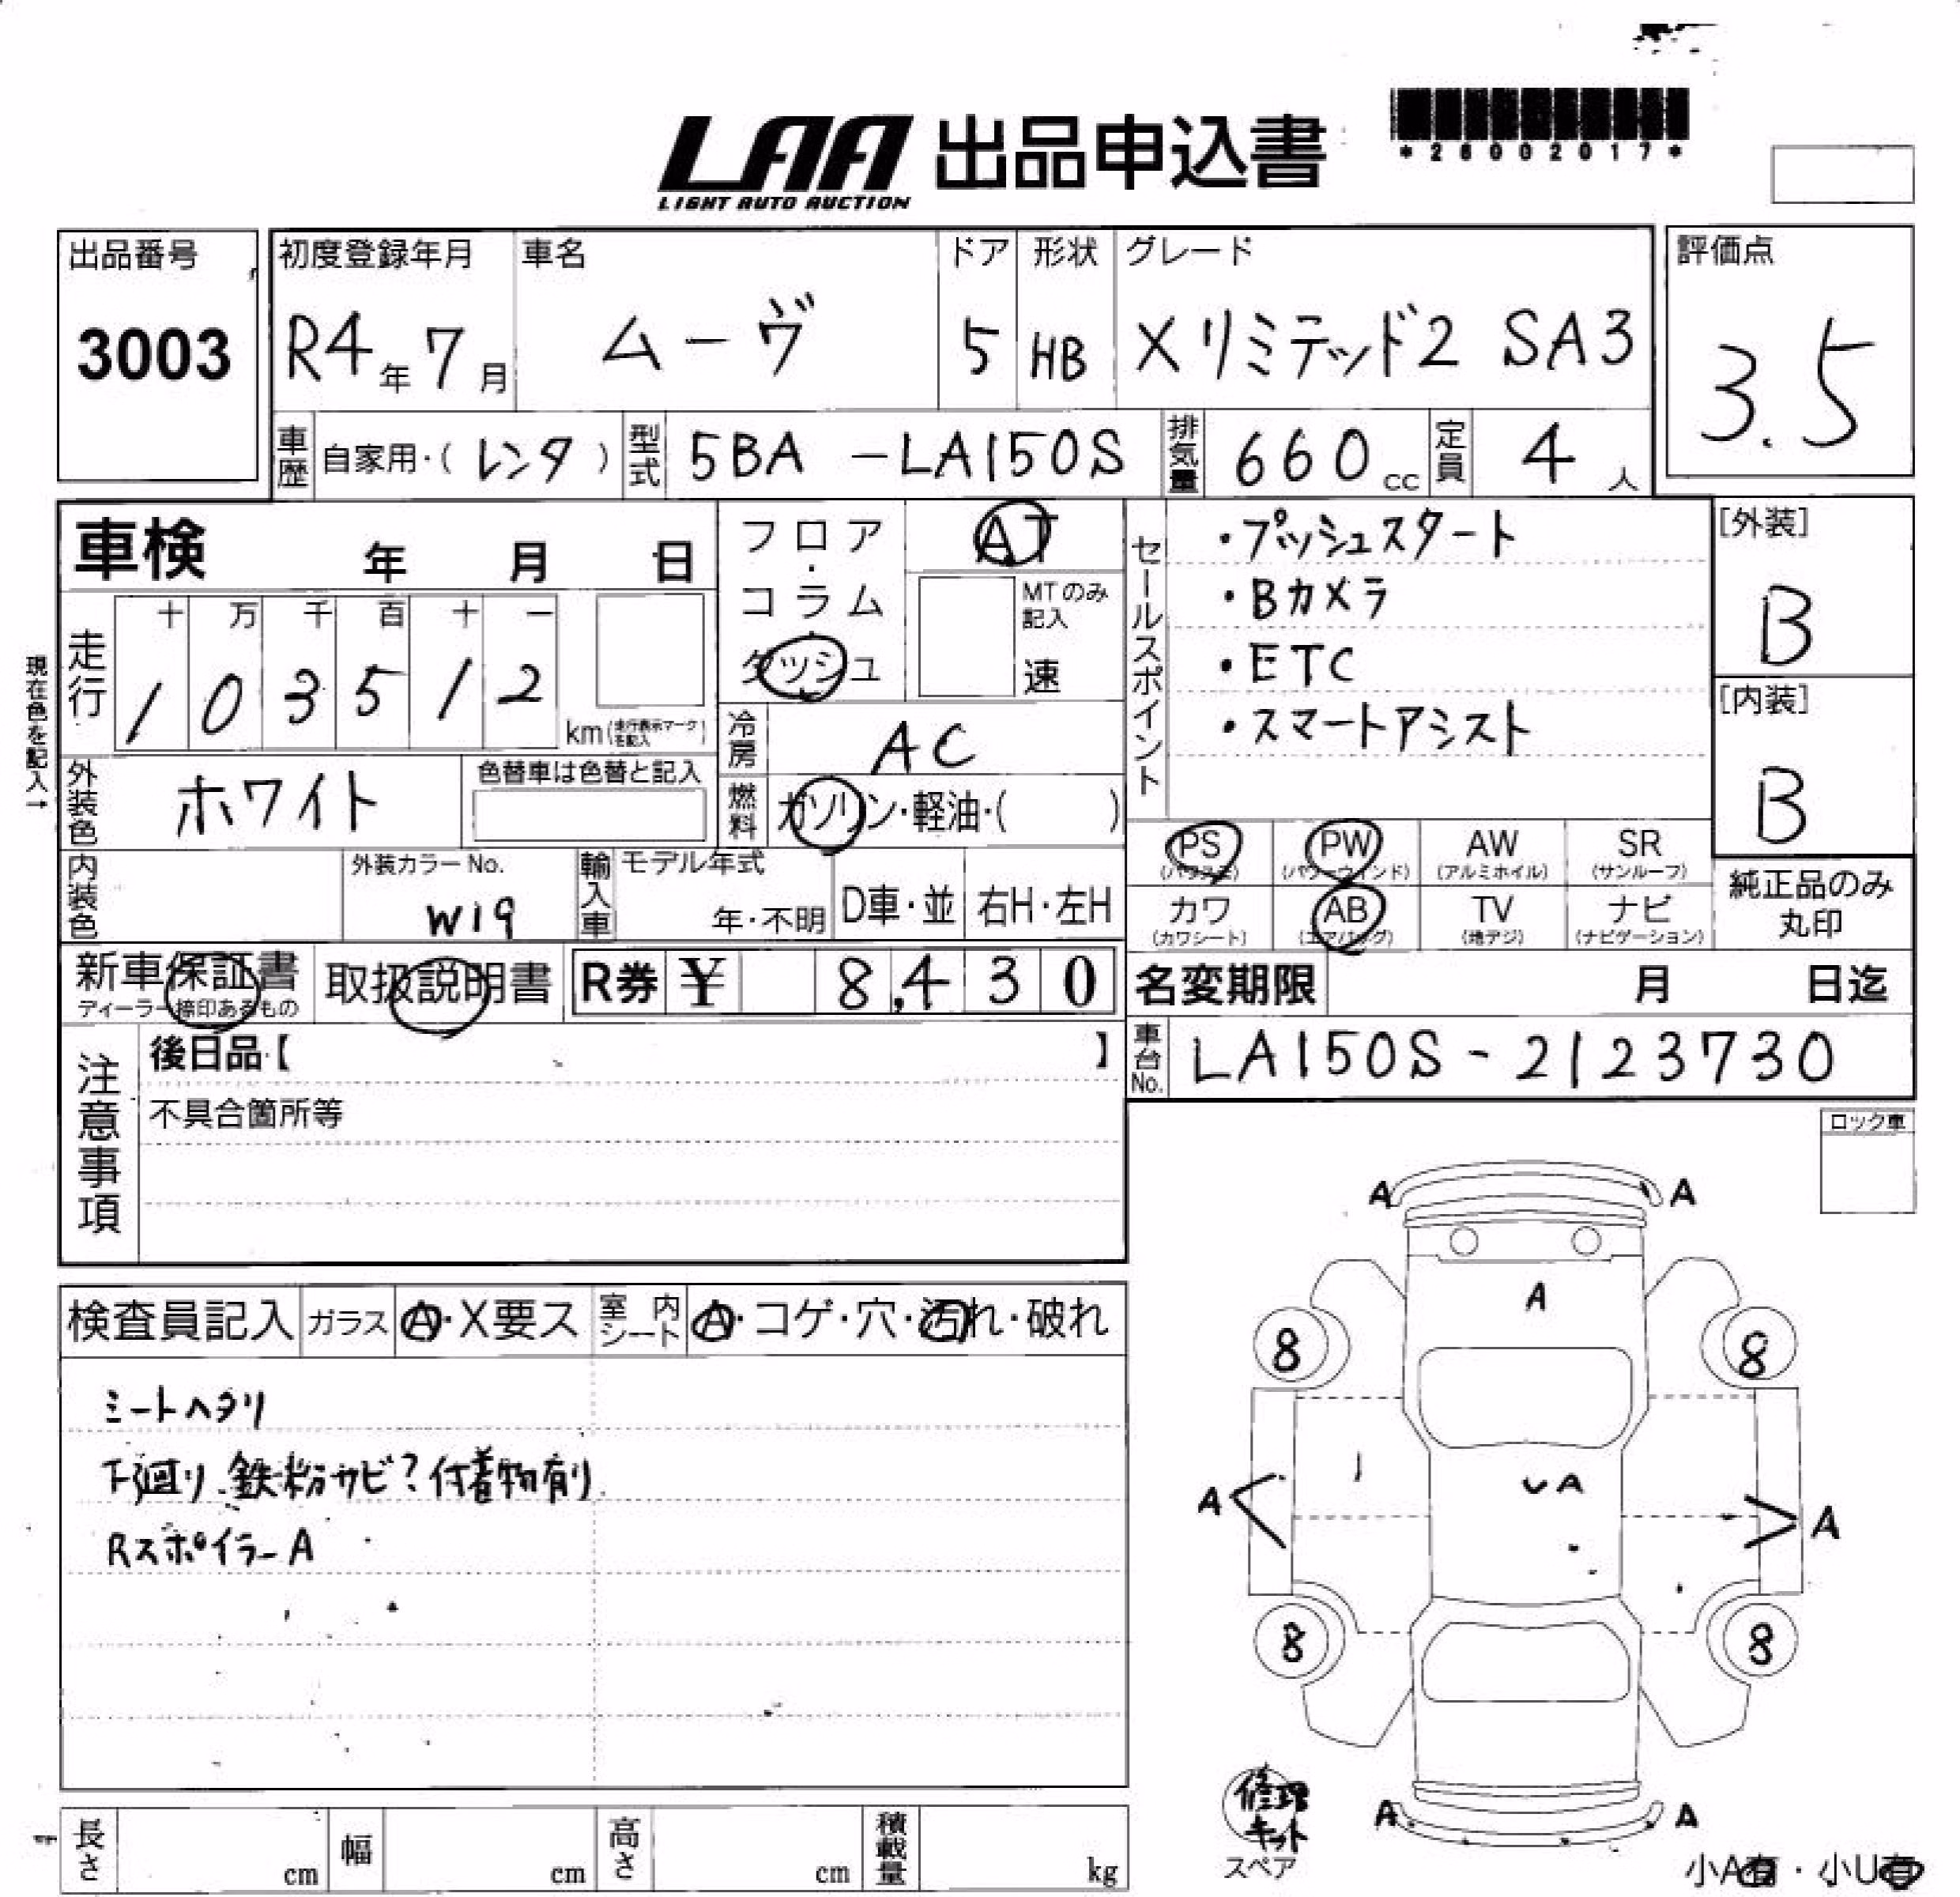 LAA 出品申込書
LIGHT AUTO AUCTION
*26002017*
出品番号 初度登録年月 車名 ドア 形状 グレード 評価点
3003 R4年7月 ムーヴ 5 HB Xリミテッド2 SA3 3.5
車歴 自家用・(レンタ) 型式 5BA -LA150S 排気量 660cc 定員 4人
車検 年 月 日
フロア・コラム・ダッシュ
AT
MTのみ記入
速
走行
十 万 千 百 十 一
1 0 3 5 1 2
km(走行表示マークを記入)
現在色を記入→
冷房 AC
外装色 ホワイト
色替車は色替と記入
燃料 ガソリン・軽油・( )
内装色
外装カラーNo.
W19
輸入車
モデル年式
年・不明
D車・並
右H・左H
セールスポイント
・プッシュスタート
・Bカメラ
・ETC
・スマートアシスト
[外装]
B
[内装]
B
PS PW AW SR
(パワステ) (パワーウィンド) (アルミホイル) (サンルーフ)
カワ AB TV ナビ
(カワシート) (エアバッグ) (地デジ) (ナビゲーション)
純正品のみ
丸印
新車保証書
ディーラー捺印あるもの
取扱説明書
R券 ¥ 8,430
名変期限 月 日迄
車台No. LA150S-2123730
注意事項
後日品【 】
不具合箇所等
ロック車
検査員記入 ガラス A・X要ス 室内シート A・コゲ・穴・汚れ・破れ
シートヘタリ
下廻り.鉄粉サビ?付着物有り
RスポイラーA
A A
A
8 8
A UA A
8 8
A A
修理
キット
スペア
小A有・小U有
長さ cm 幅 cm 高さ cm 積載量 kg